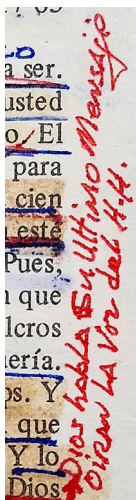 LO
a ser.
usted
o. El
para
cien
esté
Pues,
que
lcros
ería.
os. Y
que
Y lo
Dios
Dios habla Su Ultimo Mensaje
Oiran La Voz del H.H.